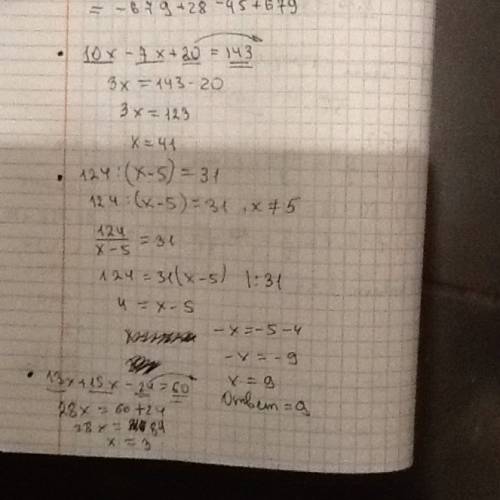 = -679+28-45+679
• 10x-7x+20=143
3x=143-20
3x=123
x=41
• 124:(x-5)=31
124:(x-5)=31, x≠5
124/x-5=31
124=31(x-5) |:31
4=x-5
-x=-5-4
-x=-9
x=9
Ответ=9
• 13x+15x-24=60
28x=60+24
28x=84
x=3